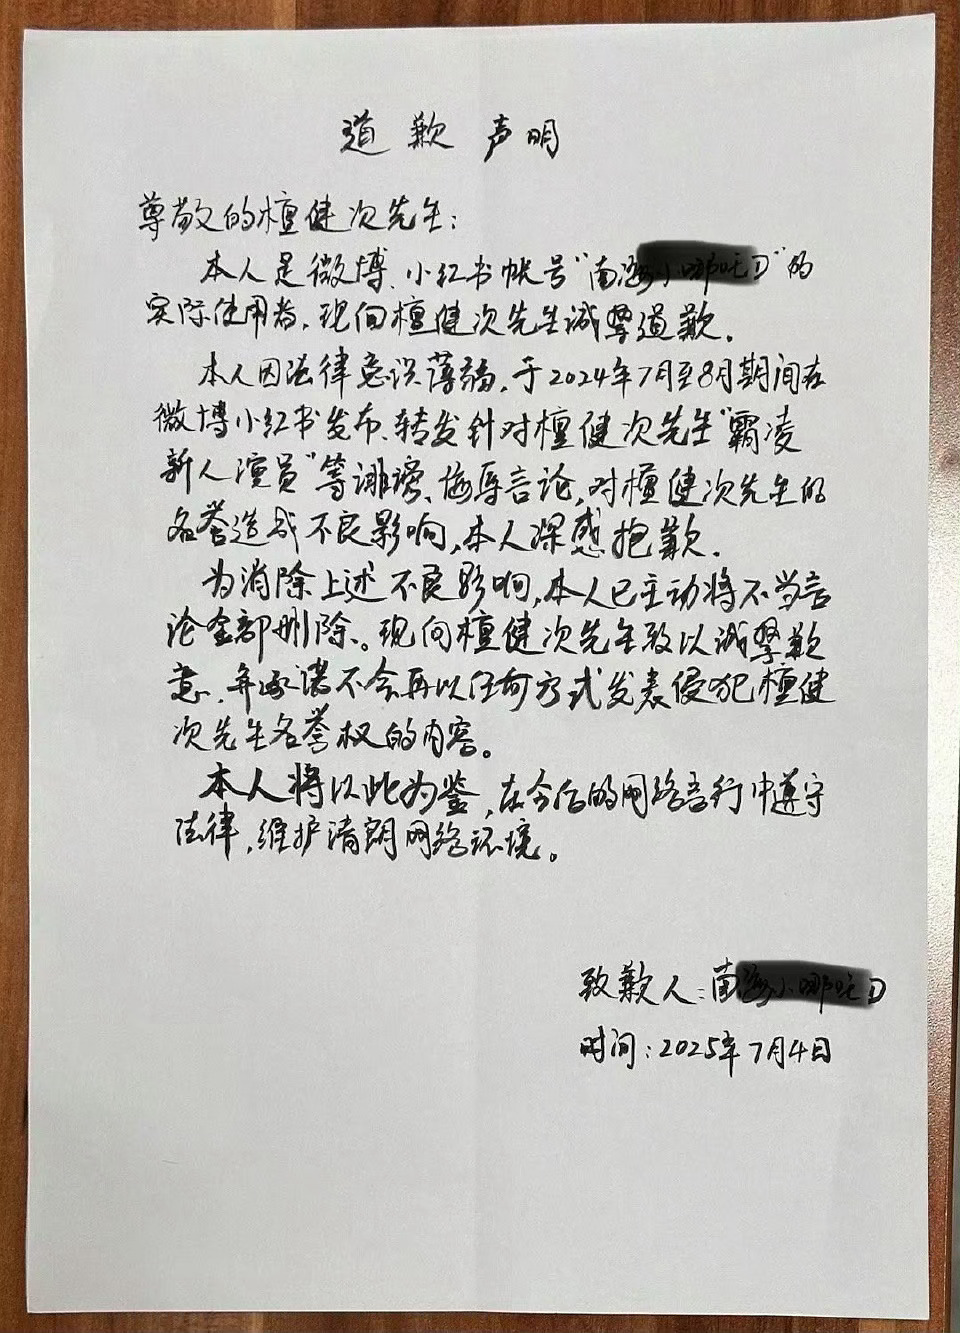 道歉声明
尊敬的檀健次先生：
本人是微博、小红书帐号“南
的
实际使用者，现向檀健次先生诚挚道歉。
本人因法律意识薄弱，于2024年7月至8月期间在
微博小红书发布、转发针对檀健次先生“霸凌
新人演员”等诽谤、侮辱言论，对檀健次先生的
名誉造成不良影响，本人深感抱歉。
为消除上述不良影响，本人已主动将不当言
论全部删除。现向檀健次先生致以诚挚歉
意，并承诺不会再以任何方式发表侵犯檀健
次先生名誉权的内容。
本人将以此为鉴，在今后的网络言行中遵守
法律，维护清朗网络环境。
致歉人：南
时间：2025年7月4日